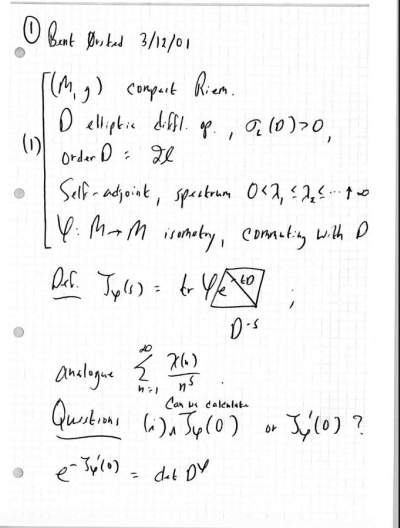 ① Bent Ørsted 3/12/01
(M, g) compact Riem.
D elliptic diffl. op., σ_L(D) > 0,
(1) order D = 2ℓ
Self-adjoint, spectrum 0 < λ₁ ≤ λ₂ ≤ ⋯ ↑ ∞
φ: M → M isometry, commuting with D
Def. ζ_φ(s) = tr φ e^{-tD} ;
D^{-s}
analogue ∑_{n=1}^{∞} χ(n)/n^s .
Can we calculate
Questions (i) ∧ ζ_φ(0) or ζ_φ'(0) ?
e^{-ζ_φ'(0)} = det D^φ